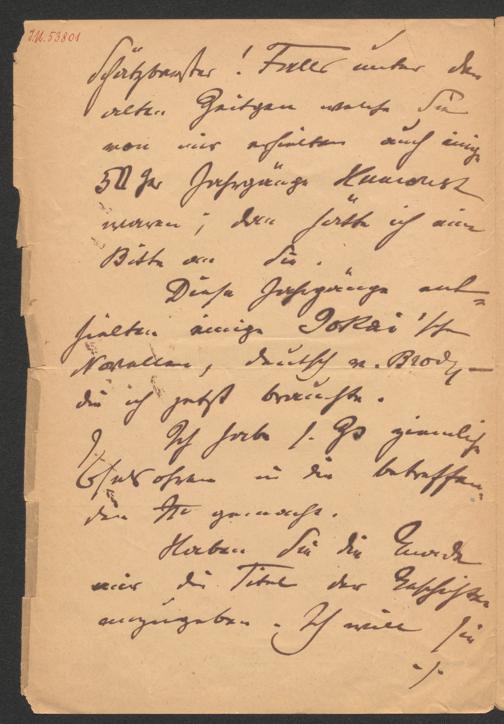 J.N. 53801
Schätzbarster! Falls unter den
alten Zeitgen welche Sie
von mir erhielten auch einige
50ger Jahrgänge Humorist
waren; dan hätte ich eine
Bitte an Sie.
Diese Jahrgänge ent=
hielten einige Jokai'sche
Novellen, deutsch v. Brody
die ich jetzt brauchte.
Ich habe s. Z. ziemlich
Eselsohren in die betreffen=
den gemacht.
Haben Sie die Gnade
mir die Titel der Geschichten
anzugeben. Ich will sie
./.